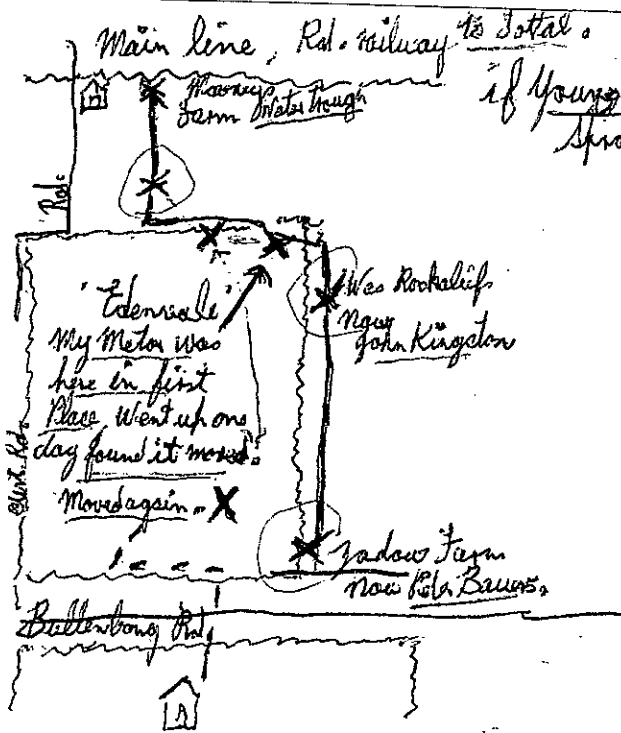 Main line, Rd. railway to Jottal.
if Young
Mooneys
Farm Water trough
Rd.
"Edenvale"
My Meter was
here in first
Place, Went up one
day found it moved.
Moved again.
Was Rockcliffs
Now
John Kingston
Rd.
Farm
now Peter Bauers.
Bullenbong Rd.